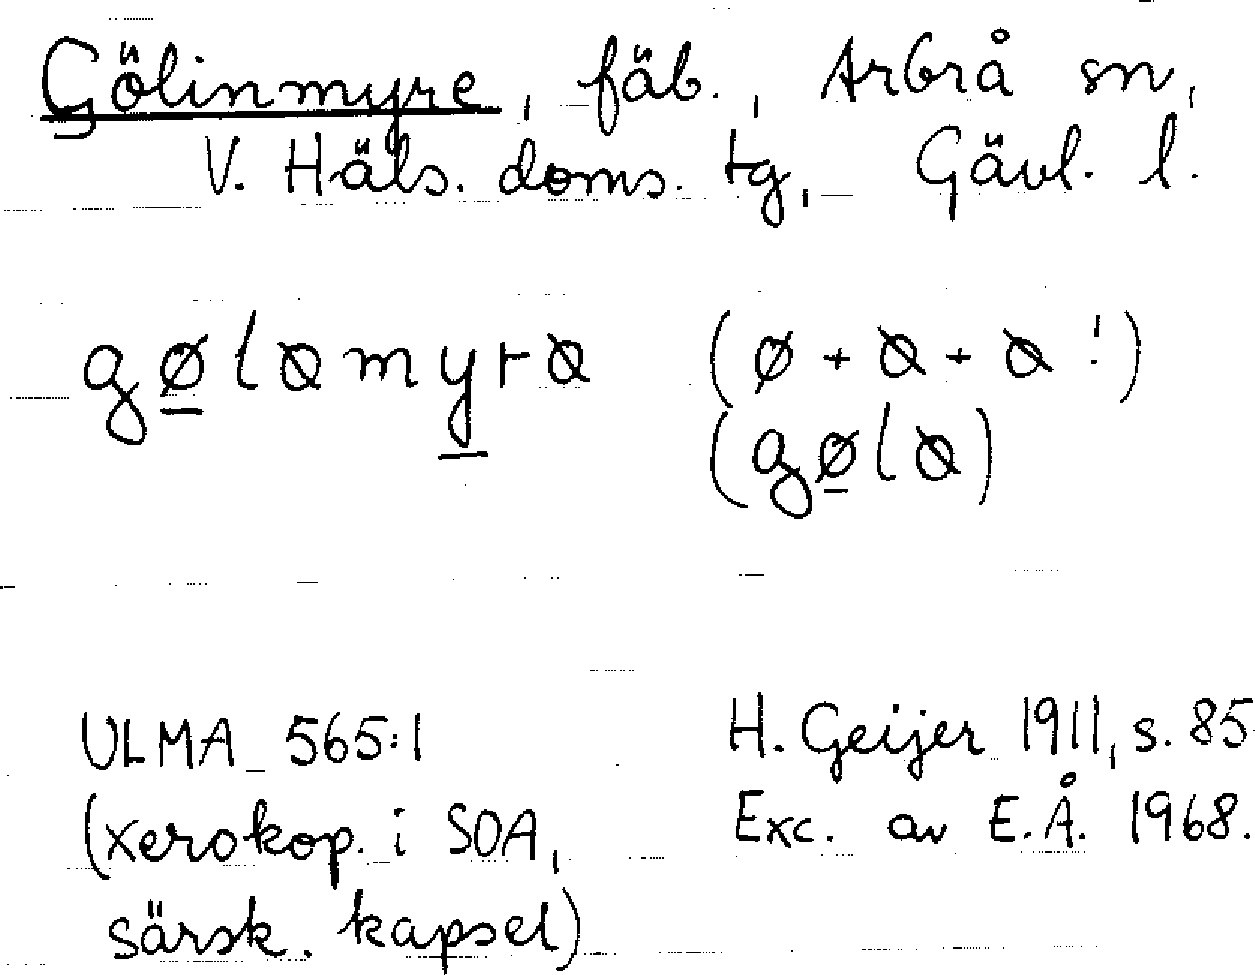 Gölinmyre, fäb., Arbrå sn,
V. Häls. doms. tg, Gävl. l.
gølαmyrα (ø + α + α !)
(gølα)
ULMA 565:1 H. Geijer 1911, s. 85
(xerokop. i SOA, Exc. av E.Å. 1968.
särsk. kapsel)